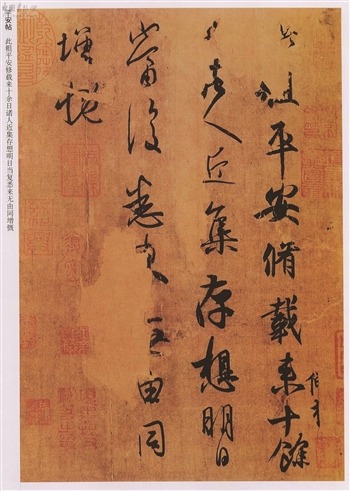 此粗平安脩載来十餘
日諸人近集存想明日
當復悉来无由同
增慨
平安帖 此粗平安修载来十余日诸人近集存想明日当复悉来无由同增慨